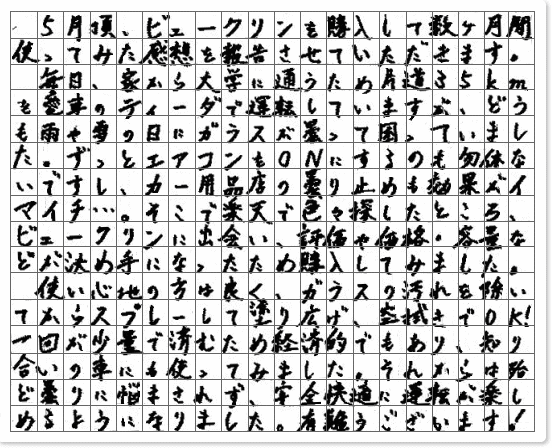 ５月頃、ビュークリンを購入して数ヶ月間
使ってみた感想を報告させていただきます。
毎日、家から大学に通うため片道３５ｋｍ
を愛車のティーダで運転していますが、どう
も雨や雪の日にガラスが曇って困っていまし
た。ずっとエアコンをＯＮにするのも勿体な
いですし、カー用品店の曇り止めも効果がイ
マイチ…。そこで楽天で色々探したところ、
ビュークリンに出会い、評価や価格・容量な
どが決め手になったため購入してみました。
使い心地の方は良く、ガラスの汚れを除い
てからスプレーして塗り広げ、空拭きでＯＫ！
一回が少量で済むため経済的でもあり、知り
合いの車にも使ってみました。それからは殆
ど曇りに悩まされず、安全快適に運転が楽し
めるようになりました。有難うございます！